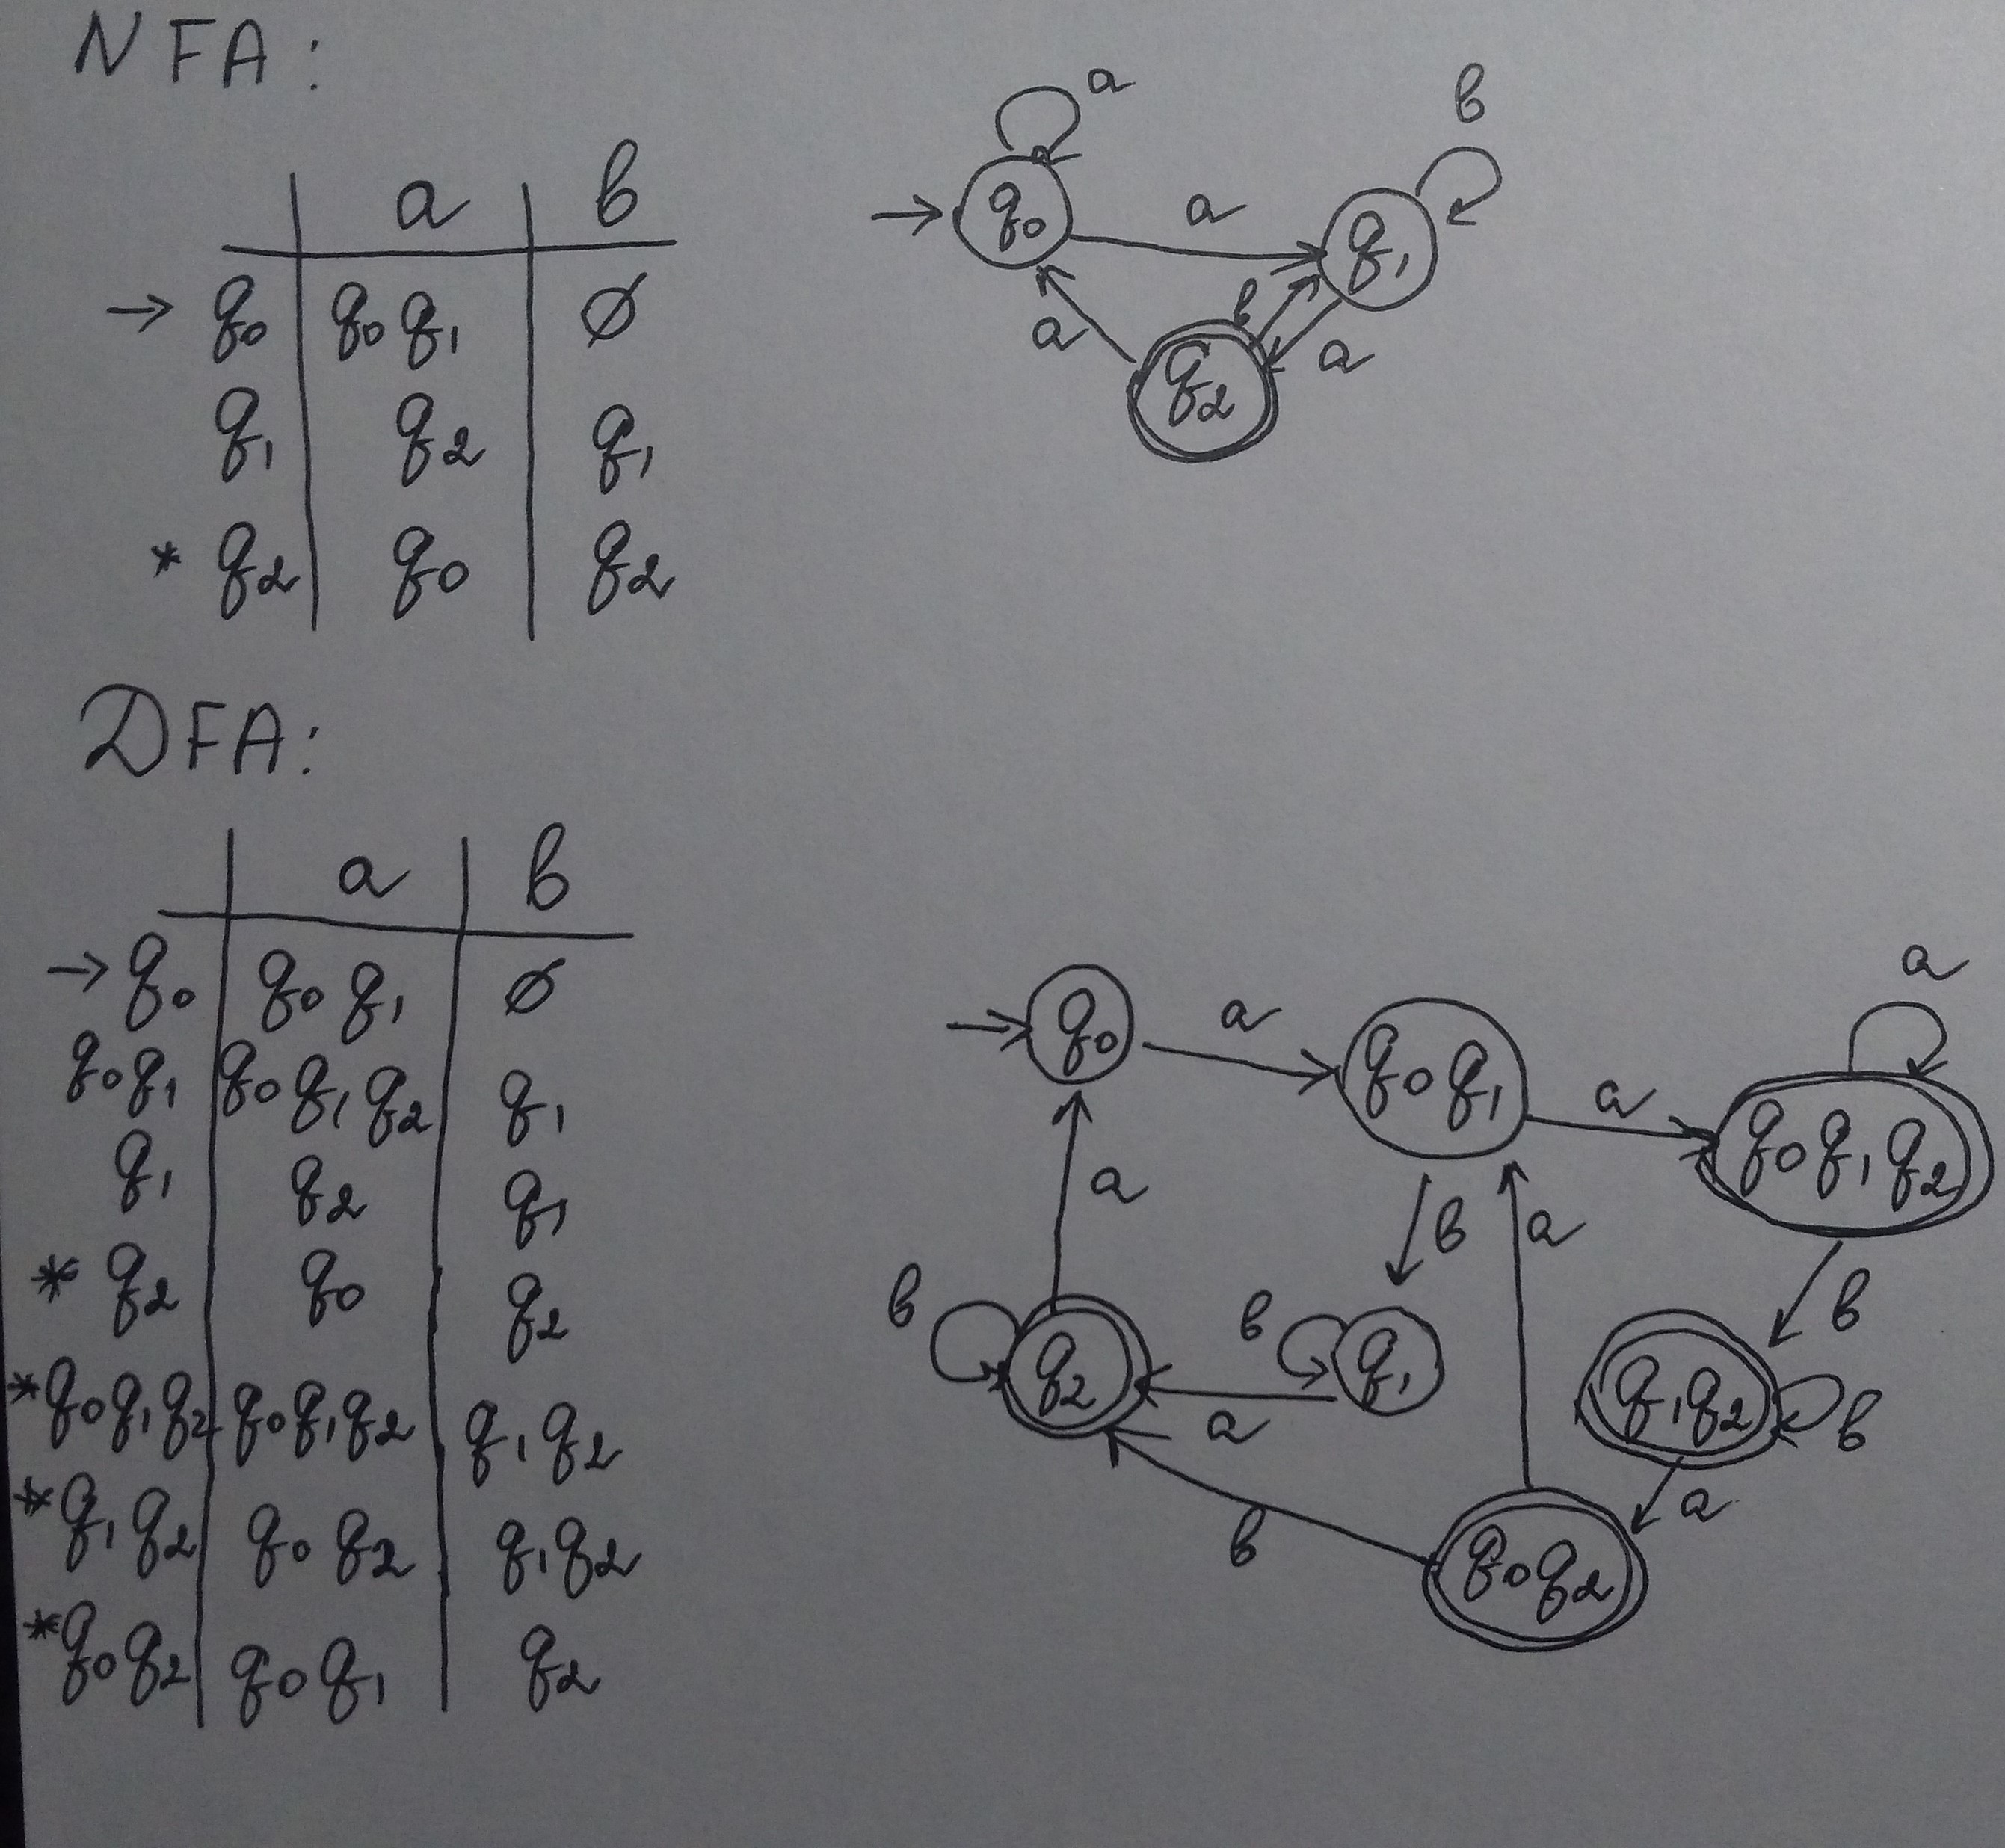 NFA:
a b
→ q0 q0 q1 ∅
q1 q2 q1
* q2 q0 q2
a
b
→ q0 a q1
a b a
q2
DFA:
a b
→ q0 q0 q1 ∅
q0 q1 q0 q1 q2 q1
q1 q2 q1
* q2 q0 q2
* q0 q1 q2 q0 q1 q2 q1 q2
* q1 q2 q0 q2 q1 q2
* q0 q2 q0 q1 q2
a
→ q0 a q0 q1 a q0 q1 q2
a b a b
b q2 b q1 q1 q2 b
a a
b q0 q2